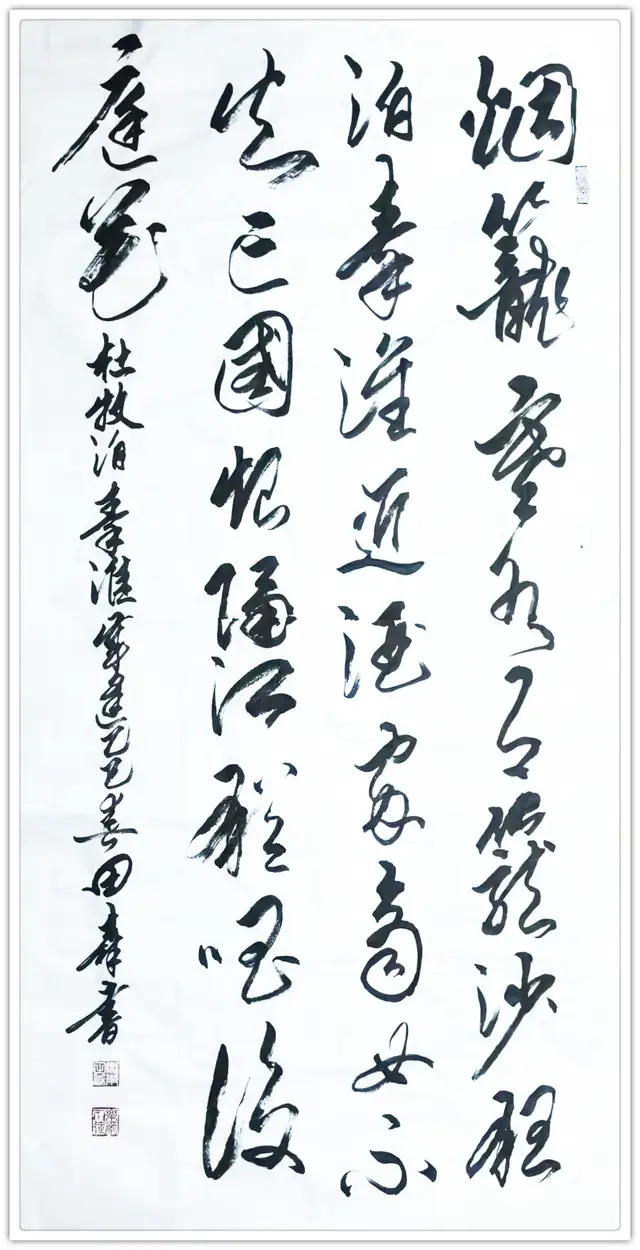 烟籠寒水月籠沙夜
泊秦淮近酒家商女不
知亡國恨隔江猶唱後
庭花 杜牧泊秦淮歲逢乙巳春田書